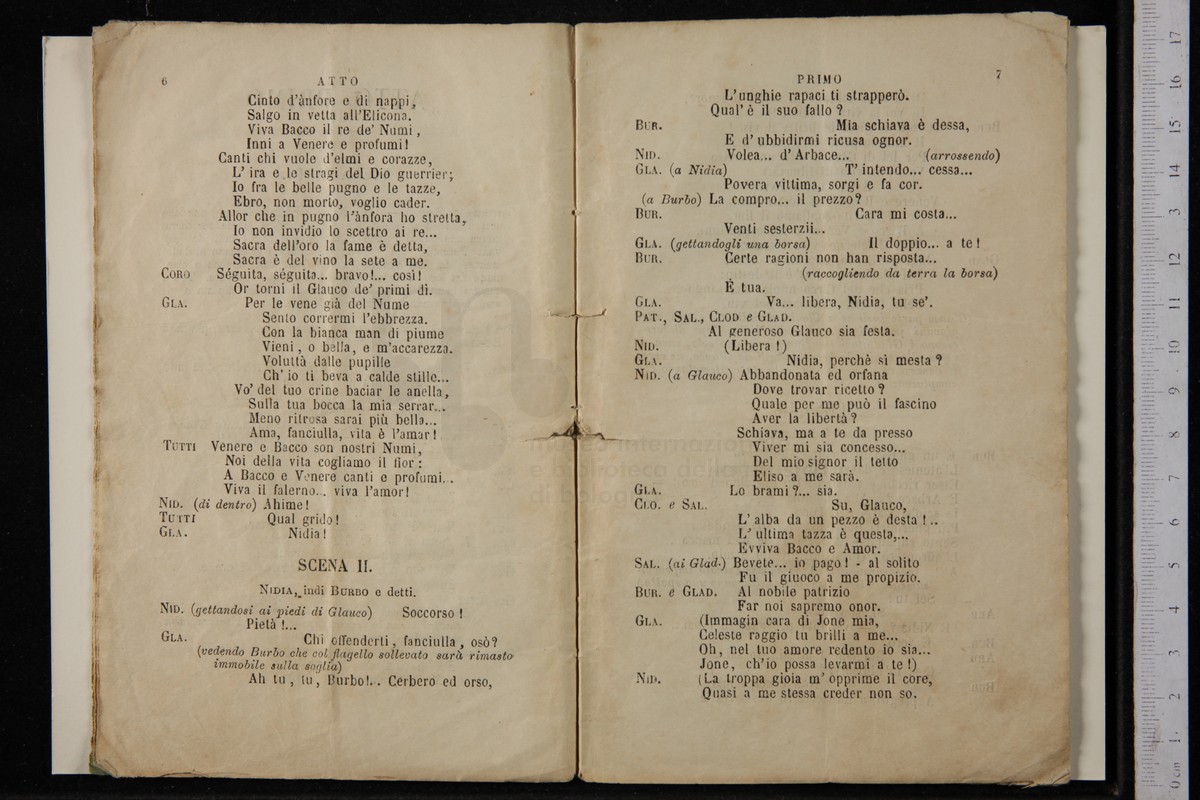 6
ATTO
Cinto d'ànfore e di nappi,
Salgo in vetta all'Elicona.
Viva Bacco il re de' Numi,
Inni a Venere e profumi!
Canti chi vuole d'elmi e corazze,
L'ira e le stragi del Dio guerrier;
Io fra le belle pugno e le tazze,
Ebro, non morto, voglio cader.
Allor che in pugno l'ànfora ho stretta,
Io non invidio lo scettro ai re...
Sacra dell'oro la fame è detta,
Sacra è del vino la sete a me.
CORO Séguita, séguita... bravo!... così!
Or torni il Glauco de' primi dì.
GLA. Per le vene già del Nume
Sento corrermi l'ebbrezza.
Con la bianca man di piume
Vieni, o bella, e m'accarezza.
Voluttà dalle pupille
Ch'io ti beva a calde stille...
Vo' del tuo crine baciar le anella,
Sulla tua bocca la mia serrar...
Meno ritrosa sarai più bella...
Ama, fanciulla, vita è l'amar!
TUTTI Venere e Bacco son nostri Numi,
Noi della vita cogliamo il fior:
A Bacco e Venere canti e profumi...
Viva il falerno... viva l'amor!
NID. (di dentro) Ahime!
TUTTI Qual grido!
GLA. Nidia!
SCENA II.
NIDIA, indi BURBO e detti.
NID. (gettandosi ai piedi di Glauco) Soccorso!
Pietà!...
GLA. Chi offenderti, fanciulla, osò?
(vedendo Burbo che col flagello sollevato sarà rimasto
immobile sulla soglia)
Ah tu, tu, Burbo!.. Cerbero ed orso,
PRIMO
7
L'unghie rapaci ti strapperò.
Qual'è il suo fallo?
BUR. Mia schiava è dessa,
E d'ubbidirmi ricusa ognor.
NID. Volea... d'Arbace... (arrossendo)
GLA. (a Nidia) T'intendo... cessa...
Povera vittima, sorgi e fa cor.
(a Burbo) La compro... il prezzo?
BUR. Cara mi costa...
Venti sesterzii...
GLA. (gettandogli una borsa) Il doppio... a te!
BUR. Certe ragioni non han risposta...
(raccogliendo da terra la borsa)
È tua.
GLA. Va... libera, Nidia, tu se'.
PAT., SAL., CLOD e GLAD.
Al generoso Glauco sia festa.
NID. (Libera!)
GLA. Nidia, perchè sì mesta?
NID. (a Glauco) Abbandonata ed orfana
Dove trovar ricetto?
Quale per me può il fascino
Aver la libertà?
Schiava, ma a te da presso
Viver mi sia concesso...
Del mio signor il tetto
Eliso a me sarà.
GLA. Lo brami?... sia.
CLO. e SAL. Su, Glauco,
L'alba da un pezzo è desta!..
L'ultima tazza è questa,...
Evviva Bacco e Amor.
SAL. (ai Glad.) Bevete... io pago! - al solito
Fu il giuoco a me propizio.
BUR. e GLAD. Al nobile patrizio
Far noi sapremo onor.
GLA. (Immagin cara di Jone mia,
Celeste raggio tu brilli a me...
Oh, nel tuo amore redento io sia...
Jone, ch'io possa levarmi a te!)
NID. (La troppa gioia m'opprime il core,
Quasi a me stessa creder non so.